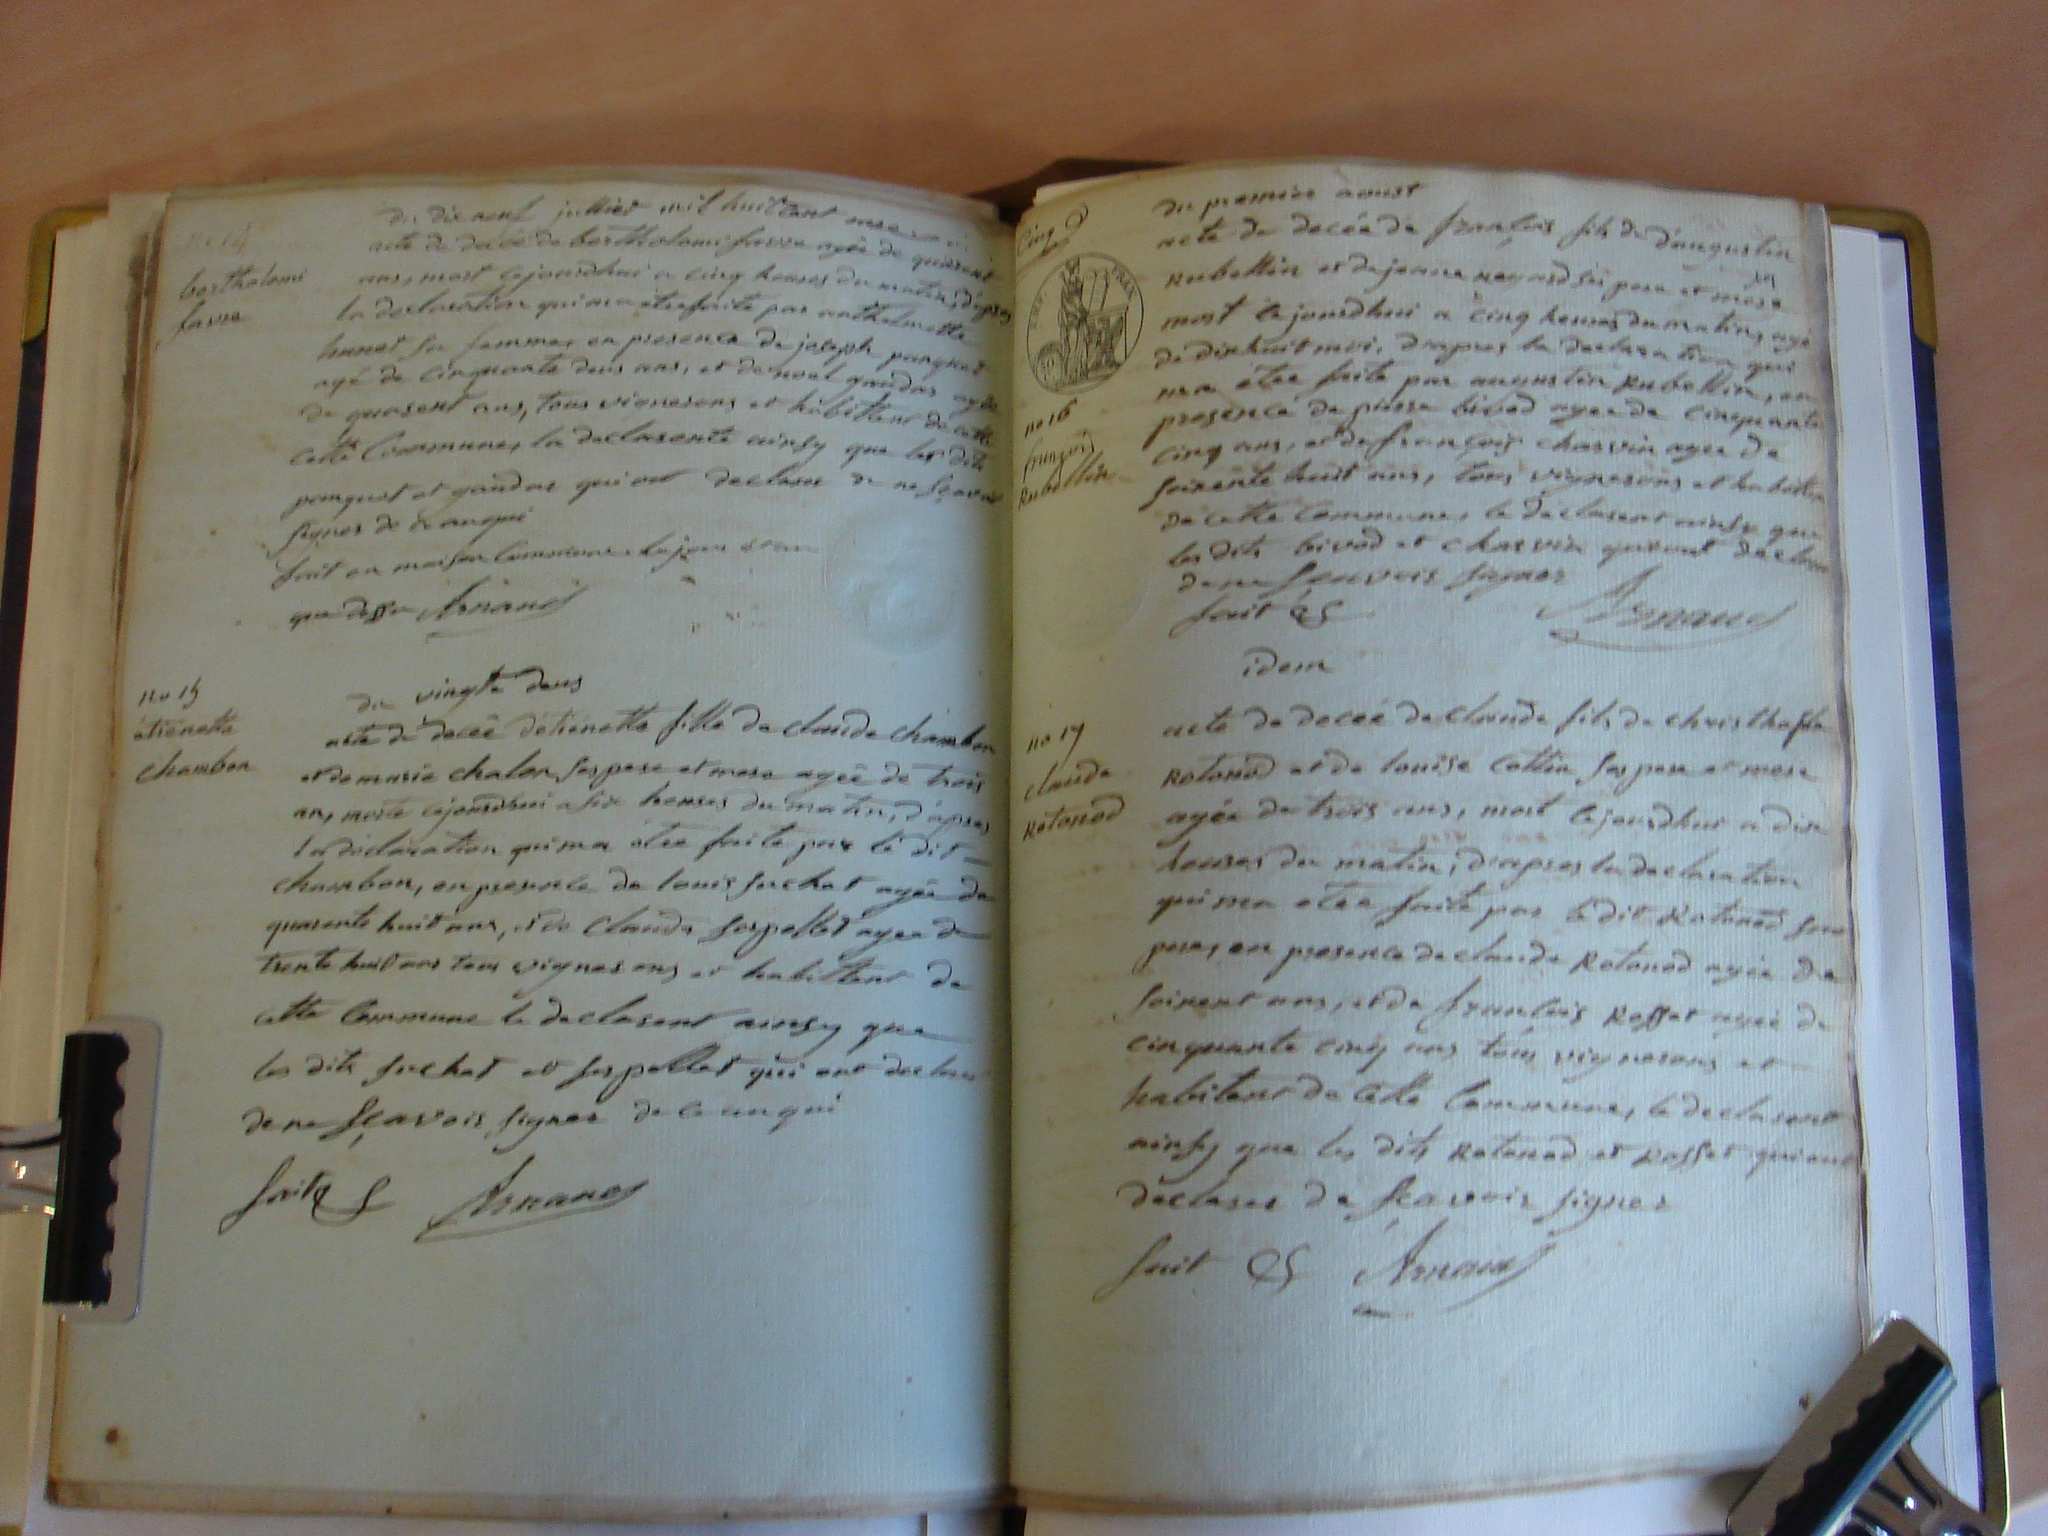 du dix neuf julliet mil huit cent onze
no 14
bertholomi
favre
acte de decée de bertholomi favre agée de quarent
ans, mort cejourdhui a cinq heures du matin, d'apres
la declaration qui ma etée faite par anthelmette
hunot sa femme, en presence de joseph panquet
agé de cinquante deus ans, et de noel gandar agée
de quarent ans, tous vignerons et habittent de cette
cette Commune, la declarente ainsy que les dits
panquet et gandar qui ont declaré de ne sçavoir
signer de ce anqui
fait en maison Commune le jour et an
que dessu Arnaud
du vingte deus
no 15
étienette
chambon
acte de decée détienette fille de claude chambon
et de marie chalon ses pere et mere agée de trois
an, morte cejourdhui a six heures du matin, d'apres
la declaration qui ma etée faite par le dit
chambon, en presence de louis suchet agée de
quarente huit ans, et de Claude serpollet agée de
trente huit ans tous vignerons et habittent de
cette Commune le declarent ainsy que
les dits suchet et serpollet qui ont declaré
de ne sçavoir signer de ce anqui
fait & Arnaud
du premier aoust
Cinq
EMP. FRAN.
no 16
françois
Rubellin
acte de decée de françois fils de d'augustin
Rubellin et de jeane Reyard ses pere et mere
mort cejourdhui a cinq heures du matin, agé
de dixhuit moi, d'apres la declaration qui
ma etée faite par augustin Rubellin, en
presence de pierre bivod agée de cinquante
cinq ans, et de françois charvin agée de
soixente huit ans, tous vignerons et habiten
de cette Commune, le declarent ainsy que
les dits bivod et charvin qui ont declaré
de ne sçavoir signer
fait & Arnaud
idem
no 17
claude
Rotonod
acte de decée de claude fils de christhofle
Rotonod et de louise Cottin ses pere et mere
agée de trois ans, mort cejourdhui a dix
heures du matin, d'apres la declaration
qui ma etée faite par le dit Rotonod son
pere, en presence de claude Rotonod agée de
soixent ans, et de françois Rosset agée de
cinquante cinq ans tous vignerons et
habitent de cette Commune, le declarent
ainsy que les dits Rotonod et Rosset qui ont
declarer de sçavoir signer
fait & Arnaud